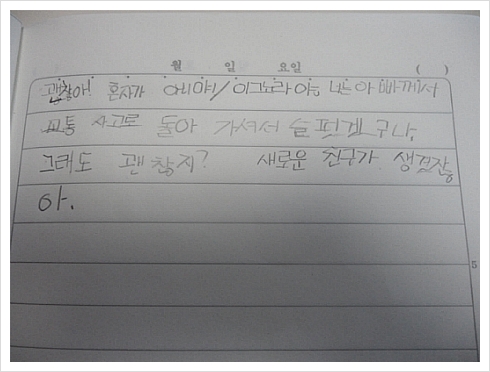 월 일 요일 ( )
괜찮아! 혼자가 아니야! 이그노라 아 너는 아빠께서
교통 사고로 돌아 가셔서 슬펏겠구나,
그래도 괜찮지? 새로운 친구가 생겼잖
아.
5